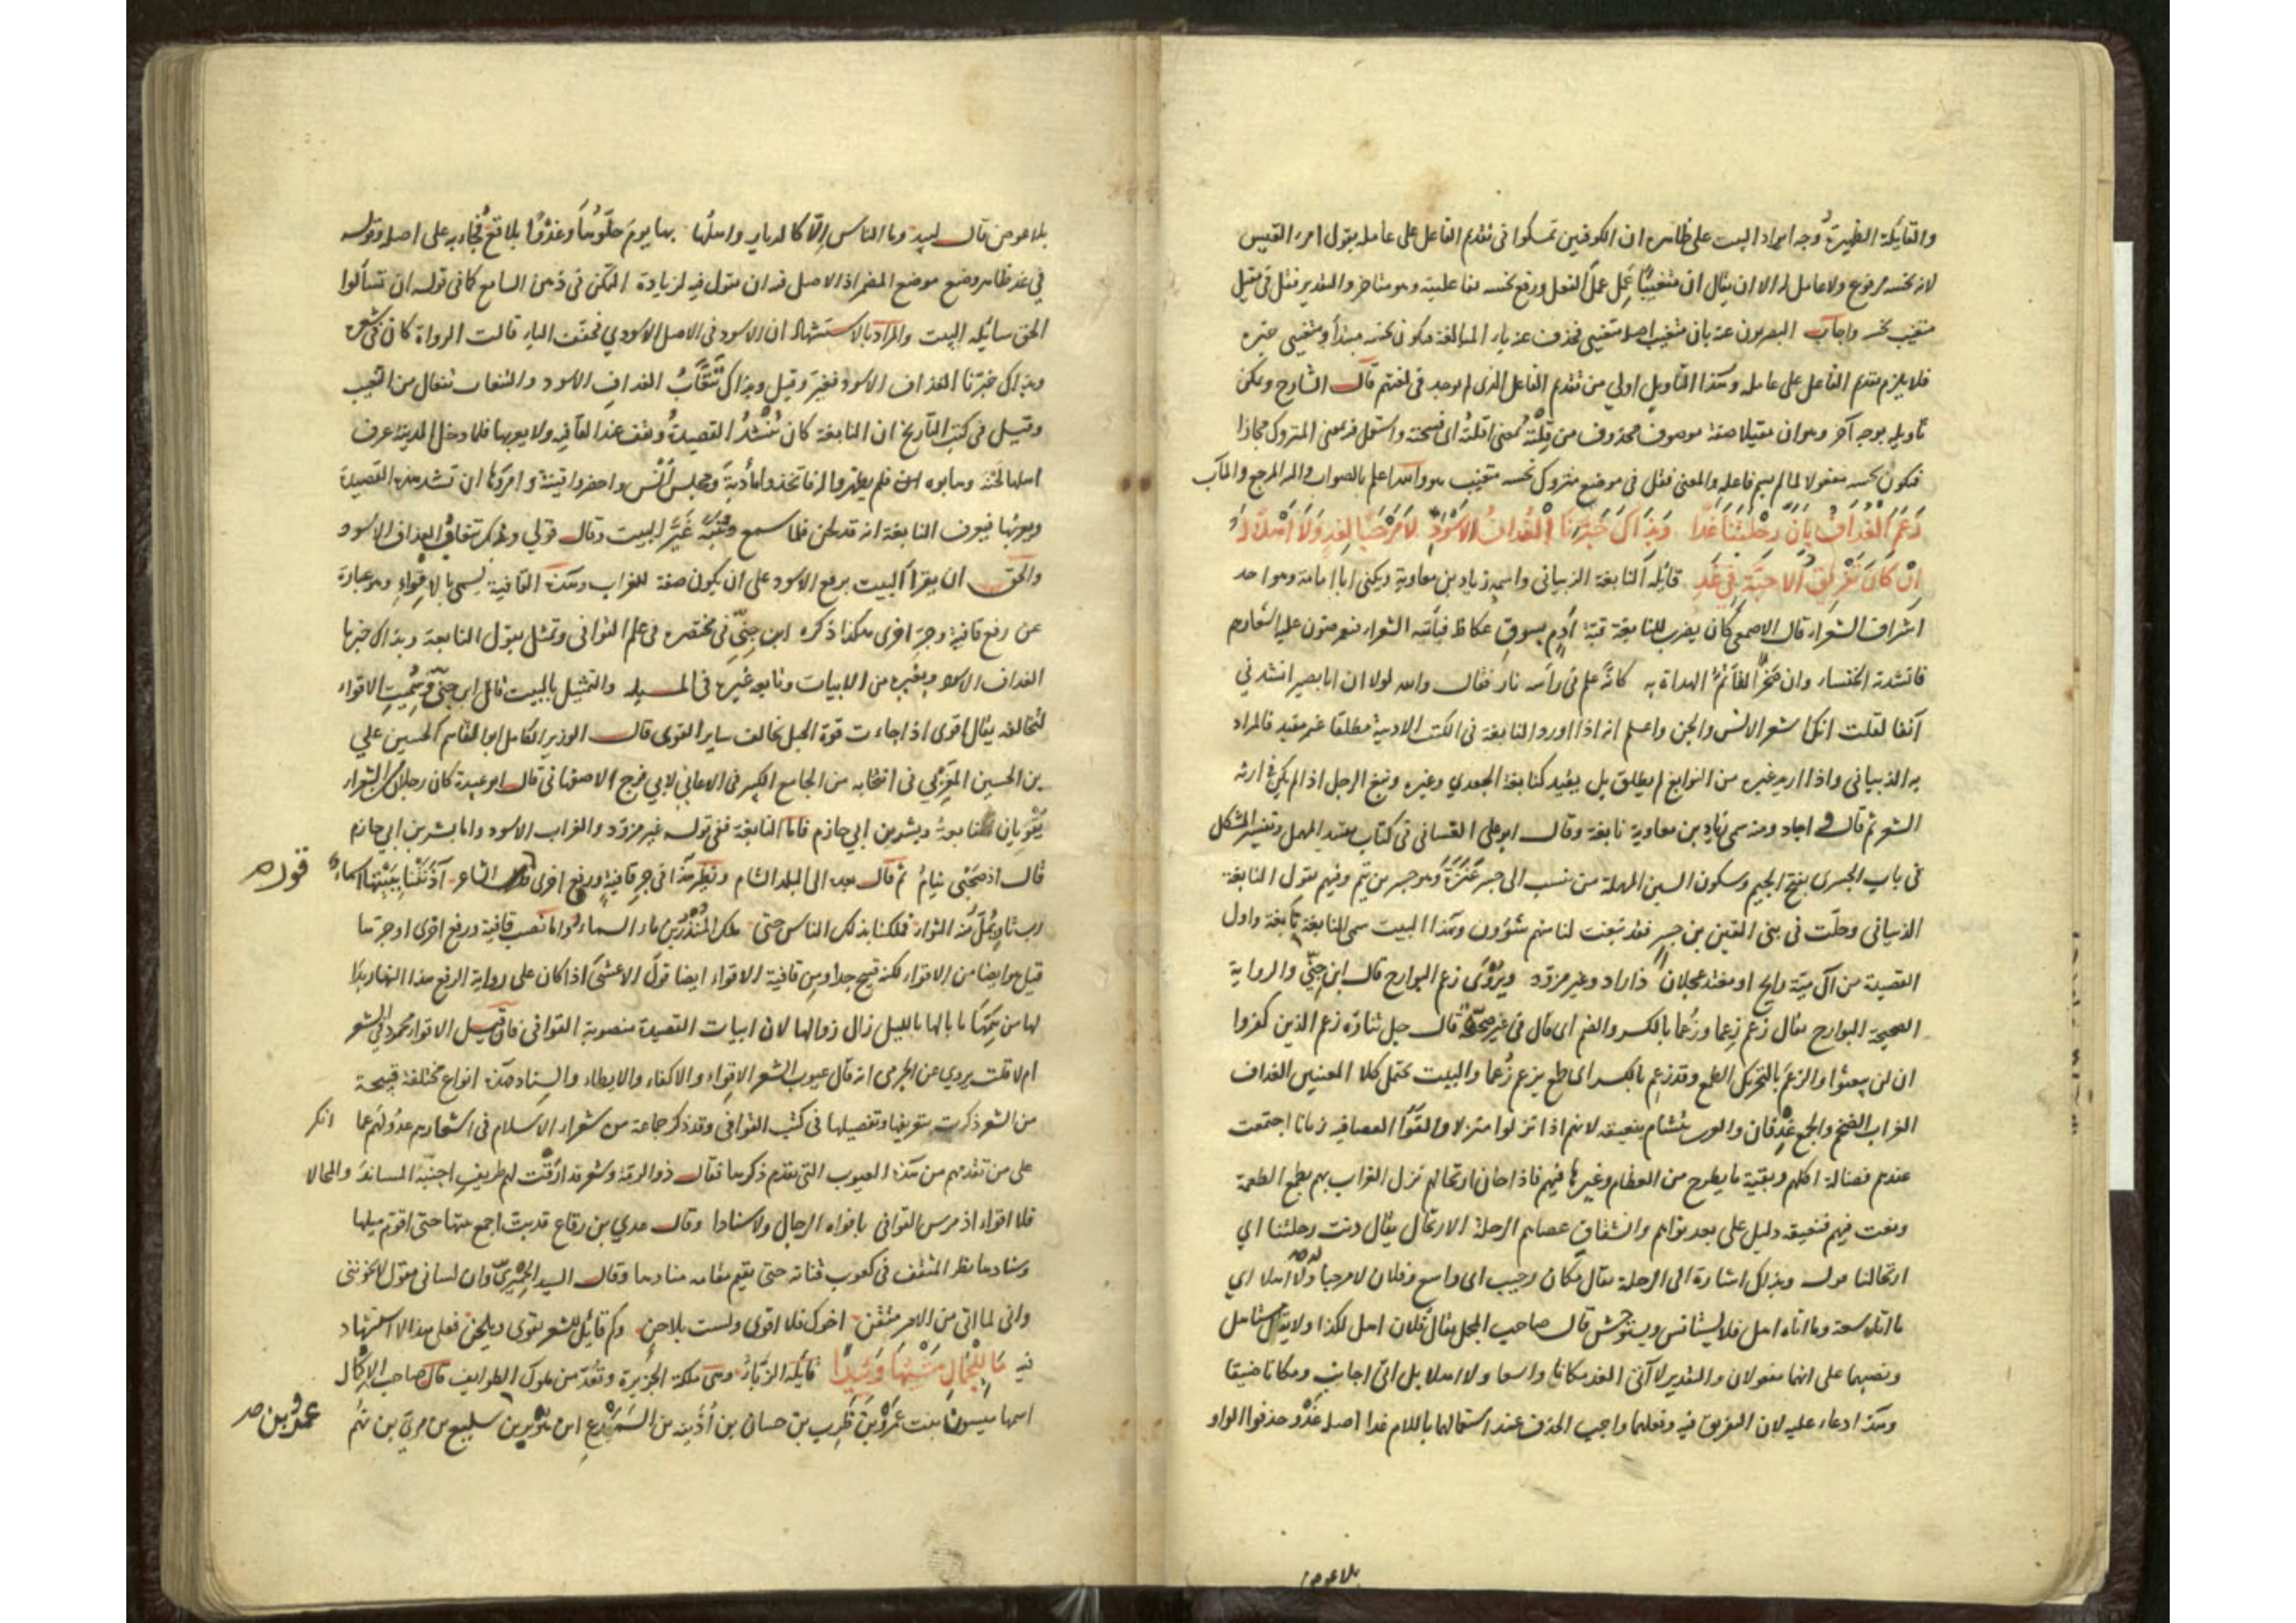 والقايلة الظهيرة وجه ايراد البيت على ظاهره ان الكوفيين تمسكوا فى تقدم الفاعل على عامله بقول امرء القيس
لان نحسه مرفوع ولا عامل له الا ان يقال ان متغيبا عمل عمل الفعل ورفع نحسه بفاعليته وهو متاخر والتقدير فقل فى مقيل
متغيب نحسه واجاب البصريون عنه بان متغيب اصله متغيبى فحذف عنه ياء المبالغة فيكون نحسه مبتدأ ومتغيبى خبره
فلا يلزم تقدم الفاعل على عامله وهذا التأويل اولى من تقدم الفاعل الذى لم يوجد فى لغتهم قال الشارح ويمكن
تأويله بوجه آخر وهو ان مقيلا صفة موصوف محذوف من قلته بمعنى اقلته اى فسخته واستعمل فى معنى المتروك مجازا
فيكون نحسه مفعولا لما لم يسم فاعله والمعنى فقل فى موضع متروك نحسه متغيب هو والله اعلم بالصواب واليه المرجع والمآب
زَعَمَ الْغُدَافُ بِاَنَّ رِحْلَتَنَا غَدًا وَبِذَاكَ خَبَّرَنَا الْغُدَافُ الاَسْوَدُ لاَ مَرْحَبًا بِغَدٍ وَلاَ اَهْلاً بِهِ
اِنْ كَانَ تَفْرِيقُ الاَحِبَّةِ فِى غَدِ قايله النابغة الذبيانى واسمه زياد بن معاوية ويكنى ابا امامة وهو احد
اشراف الشعراء قال الاصمعى كان يضرب للنابغة قبة أدم بسوق عكاظ فيأتيه الشعراء فيعرضون عليه اشعارهم
فانشدته الخنساء وان صخرا لتأتم الهداة به كانه علم فى رأسه نار فقال والله لولا ان ابا بصير انشدنى
آنفا لقلت انك اشعر الانس والجن واعلم انه اذا اورد النابغة فى الكتب الادبية مطلقا غير مقيد فالمراد
به الذبيانى واذا اريد غيره من النوابغ لم يطلق بل يقيد كنابغة الجعدي وغيره ونبغ الرجل اذا لم يكن فى ارثه
الشعر ثم قال فاجاد ومنه سمى زياد بن معاوية نابغة وقال ابو على الغسانى فى كتاب تقييد المهمل وتفسير المشكل
فى باب الجسرى بفتح الجيم وسكون السين المهملة من نسب الى جسر عنزة وهو جسر بن تيم وفيهم يقول النابغة
الذبيانى وحلّت فى بنى القين بن جسر فقد نبغت لنا منهم شؤون وبهذا البيت سمى النابغة نابغة واول
القصيدة من آل مية رايح او مغتد عجلان ذا زاد وغير مزود ويروى زعم البوارح قال ابن جنّى والرواية
الصحيحة البوارح يقال زعم زعما وزُعما بالكسر والضم اى قال فى غير صحة قال جل ثناؤه زعم الذين كفروا
ان لن يبعثوا والزعم بالتحريك الطمع وقد زعم بالكسر اى طمع يزعم زعما والبيت يحتمل كلا المعنيين الغداف
الغراب الضخم والجمع غدفان والعرب يتشأم بنعيقه لانهم اذا نزلوا منزلا والقوا العصا فيه زمانا اجتمعت
عندهم فضالة اكلهم وبقية ما يطرح من العظام وغيرها فيهم فاذا حان ارتحالهم نزل الغراب بهم يطمع الطعمة
ونعت فيهم فنعيقه دليل على بعد نواهم وانشقاق عصاهم الرحلة الارتحال يقال دنت رحلتنا اي
ارتحالنا قوله وبذاك اشارة الى الرحلة يقال مكان رحيب اى واسع وفلان لا مرحبا له ولا اهلا اي
ما اتاه سعة وما اتاه اهل فلا يستانس ويتوحش قال صاحب المجمل يقال فلان اهل لكذا ولا يقال مستاهل
ونصبهما على انهما مفعولان والتقدير لا آتى الغد مكانا واسعا ولا اهلا بل اتى اجانب ومكانا ضيقا
وهذا دعاء عليه لان التفريق فيه وفعلهما واجب الحذف عند استعمالهما باللام غدا اصله غدو حذفوا الواو
بلا عوض
بلا عوض قال لبيد وما الناس الّا كالديار واهلها بها يوم حلّوها وغدوًا بلاقع فجاء به على اصله وقوله
فى غد ظاهر وضع موضع المضمر اذ الاصل فيه ان يقول فيه لزيادة التمكن فى ذهن السامع كما فى قوله ان تسألوا
الحق سايله البيت والمراد بالاستشهاد ان الاسود فى الاصل الاسودي فخففت الياء قالت الرواة كان فى شعره
وبذاك خبّرنا الغداف الاسود فغير وقيل وبذاك تنعاب الغداف الاسود والتنعاب تفعال من النعيب
وقيل فى كتب التأريخ ان النابغة كان ينشد القصيدة ويقف عند القافيه ولا يعربها فلما دخل المدينة عرف
اهلها لحنه وهابوه ان فلم يظهروا له فاتخذوا مأدبة ومجلس أنس واحضروا قينة وامروها ان تنشد هذه القصيدة
وبعربها فيعرف النابغة انه قد لحن فلما سمع وتنبّه غيّر البيت وقال قولي وبذاك تنعاب الغداف الاسود
والحق ان يقرأ البيت برفع الاسود على ان يكون صفة للغراب وهذه القافية يسمى بالاقواء وهو عبارة
عن رفع قافية وجر اخرى هكذا ذكره ابن جنّى فى مختصره فى علم القوافى وتمثل بقول النابغة وبذاك خبرنا
الغداف الاسود وبغيره من الابيات وتابعه غيره فى المسئلة والتمثيل بالبيت قال ابن جنّى وسميت الاقواء
لتخالفه يقال اقوى اذا جاءت قوة الحبل تخالف ساير القوى قال الوزير الكامل ابو القاسم الحسين على
بن الحسين المغربي فى انتخابه من الجامع الكبير فى الاغانى لابي فرج الاصفهانى قال ابو عبيدة كان رجلان من الشعراء
يقويان النابغة وبشر بن ابي حازم فاما النابغة ففى قوله غير مزوّد والغراب الاسود واما بشر بن ابي حازم
قال اذ صحبى نيام ثم قال بعد الى البلد الشام ونظير هذا فى جر قافية ورفع اخرى قول الشاعر آذنتنا ببينها اسماء
قوله صح
رب ثاو يملّ منه الثواء فملكنا بذلك الناس حتى ملك المنذر بن ماء السماء واما نصب قافية ورفع اخرى او جرتها
قيل هو ايضا من الاقواء لكنه قبيح جدا ومن قافية الاقواء ايضا قول الاعشى اذا كان على رواية الرفع هذا النهار بدا
لها من همها ما بالها بالليل زال زوالها لان ابيات القصيدة منصوبة القوافى فان قيل الاقواء محمود فى الشعر
ام لا قلت يروى عن الجرمى انه قال عيوب الشعر الاقواء والاكفاء والايطاء والسناد هذه انواع مختلفة قبيحة
من الشعر ذكرت تعريفها وتفصيلها فى كتب القوافى وقد ذكر جماعة من شعراء الاسلام فى اشعارهم عدولهم عما انكر
على من تقدمهم من هذه العيوب التى تقدم ذكرها فقال ذو الرمة وشعر قد ارقت له طريف اجنّبه المساند والمحالا
فلا اقواء اذ مرس القوافى بافواه الرجال ولا سنادا وقال عدي بن رقاع قد بت اجمع بينها حتى اقوم ميلها
وسنادها نظر المثقف فى كعوب قناته حتى يقيم ثقافه منادها وقال السيد الحميرىّ وان لسانى مقول لا يخوننى
وانى لما اتى من الامر متقن اخوك فلا اقوى ولست بلاحن وكم قائل للشعر يقوى ويلحن فعلى هذا الاستشهاد
فيه مَا لِلْجِمَالِ مَشْيُهَا وَئِيدًا قايله الزباء وهى ملكة الجزيرة وتعد من ملوك الطوايف قال صاحب الاكمال
اسمها ميسون بنت عمرو بن ظرب بن حسان بن أذينه بن السميدع ابن هوبر بن سليع بن مرىّ بن نهم
عمرو بن صح